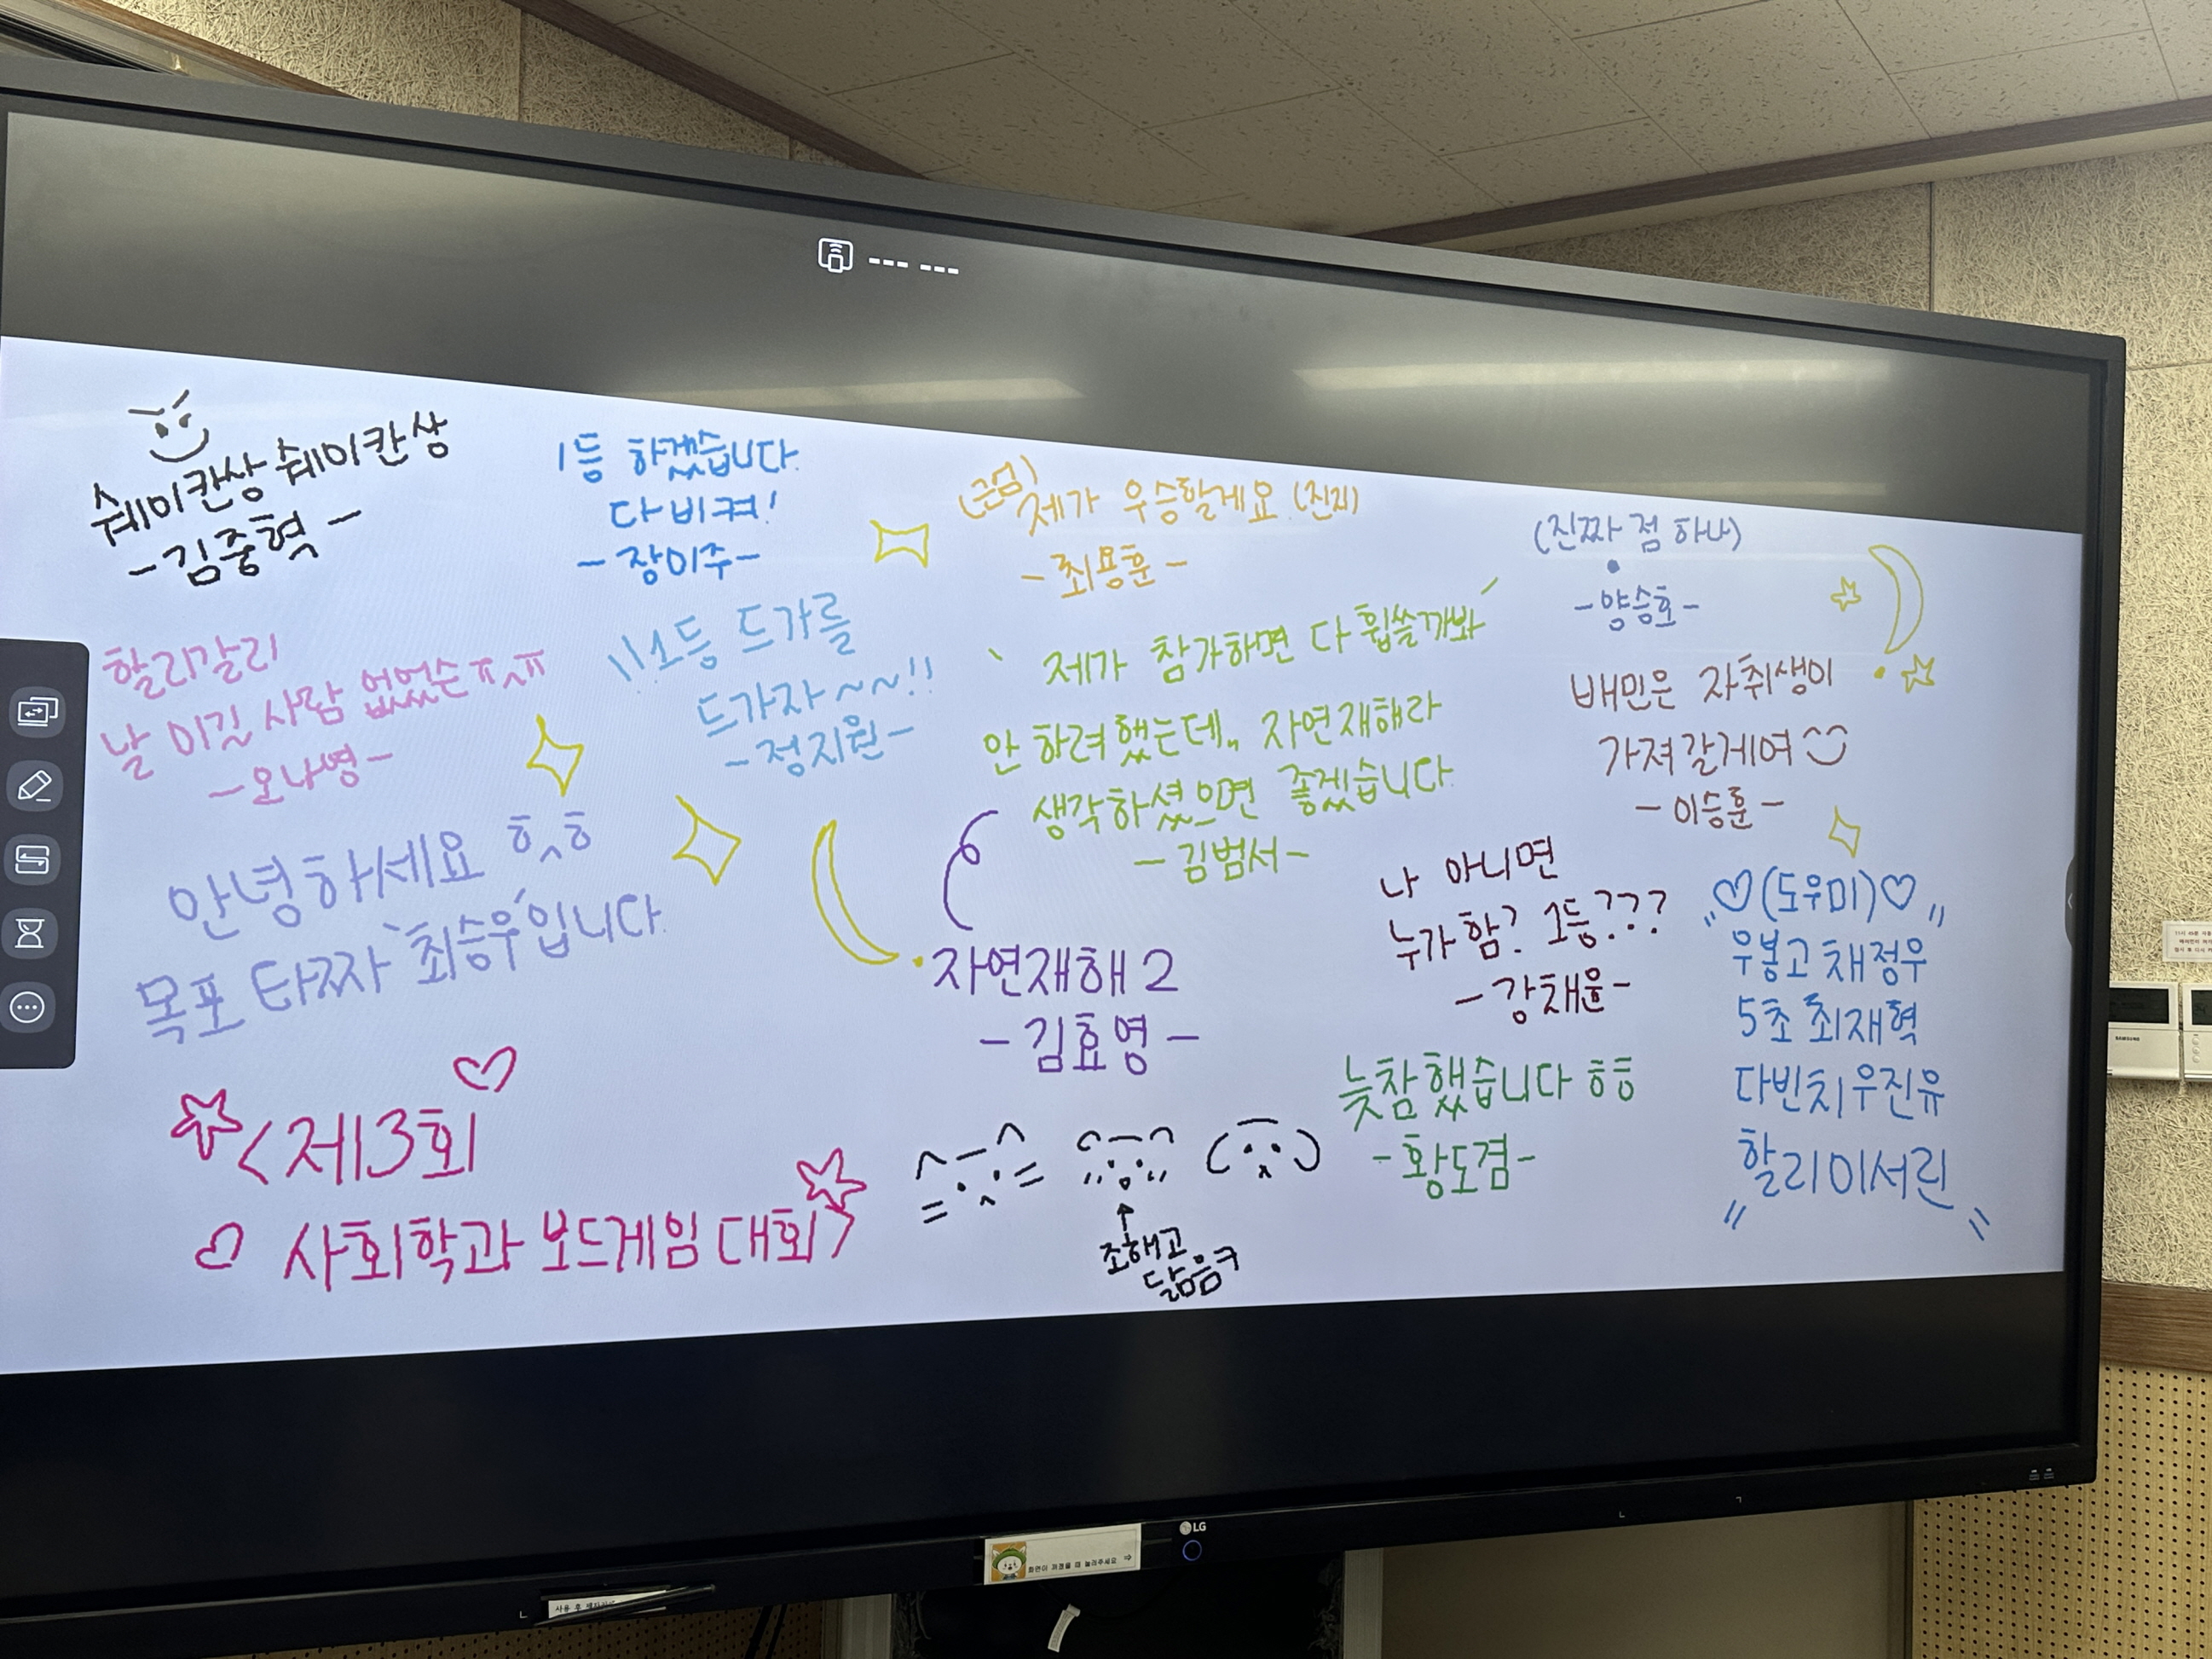 쉐이칸상 쉐이칸상
-김중혁-
1등 하겠습니다.
다 비켜!
-장이주-
(근엄)
제가 우승할게요 (진지)
-최용훈-
(진짜 점 하나)
-양승호-
할리갈리
날 이길 사람 없었슨 ㅠ^ㅠ
-오나영-
!!1등 드가를
드가자~~!!
-정지원-
` 제가 참가하면 다 휩쓸까봐 ´
안 하려 했는데,, 자연재해라
생각하셨으면 좋겠습니다.
-김범서-
배민은 자취생이
가져갈게여
-이승훈-
안녕하세요 ㅎ^ㅎ
목포 타짜 `최승우´입니다.
자연재해 2
-김효영-
나 아니면
누가 함? 1등???
-강채윤-
♡(도우미)♡
우봉고 채정우
5초 최재혁
다빈치 우진유
할리 이서린
늦참했습니다 ㅎㅎ
-황도겸-
<제3회
사회학과 보드게임 대회>
조해고
닮음ㅋ
LG
SAMSUNG